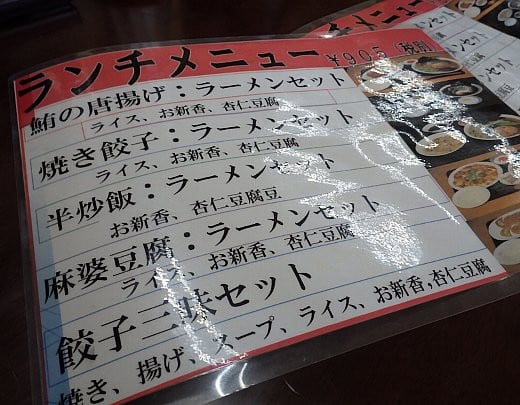 ランチメニュー ¥905 (税別)
鮪の唐揚げ：ラーメンセット
ライス、お新香、杏仁豆腐
焼き餃子：ラーメンセット
ライス、お新香、杏仁豆腐
半炒飯：ラーメンセット
お新香、杏仁豆腐豆
麻婆豆腐：ラーメンセット
ライス、お新香、杏仁豆腐
餃子三昧セット
焼き、揚げ、スープ、ライス、お新香,杏仁豆腐
メニュー
ンセット
ンセット